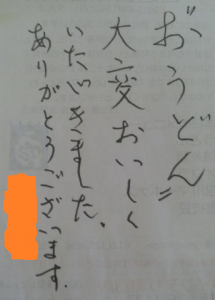 おうどん〃
大変おいしく
いただきました。
ありがとうございます。